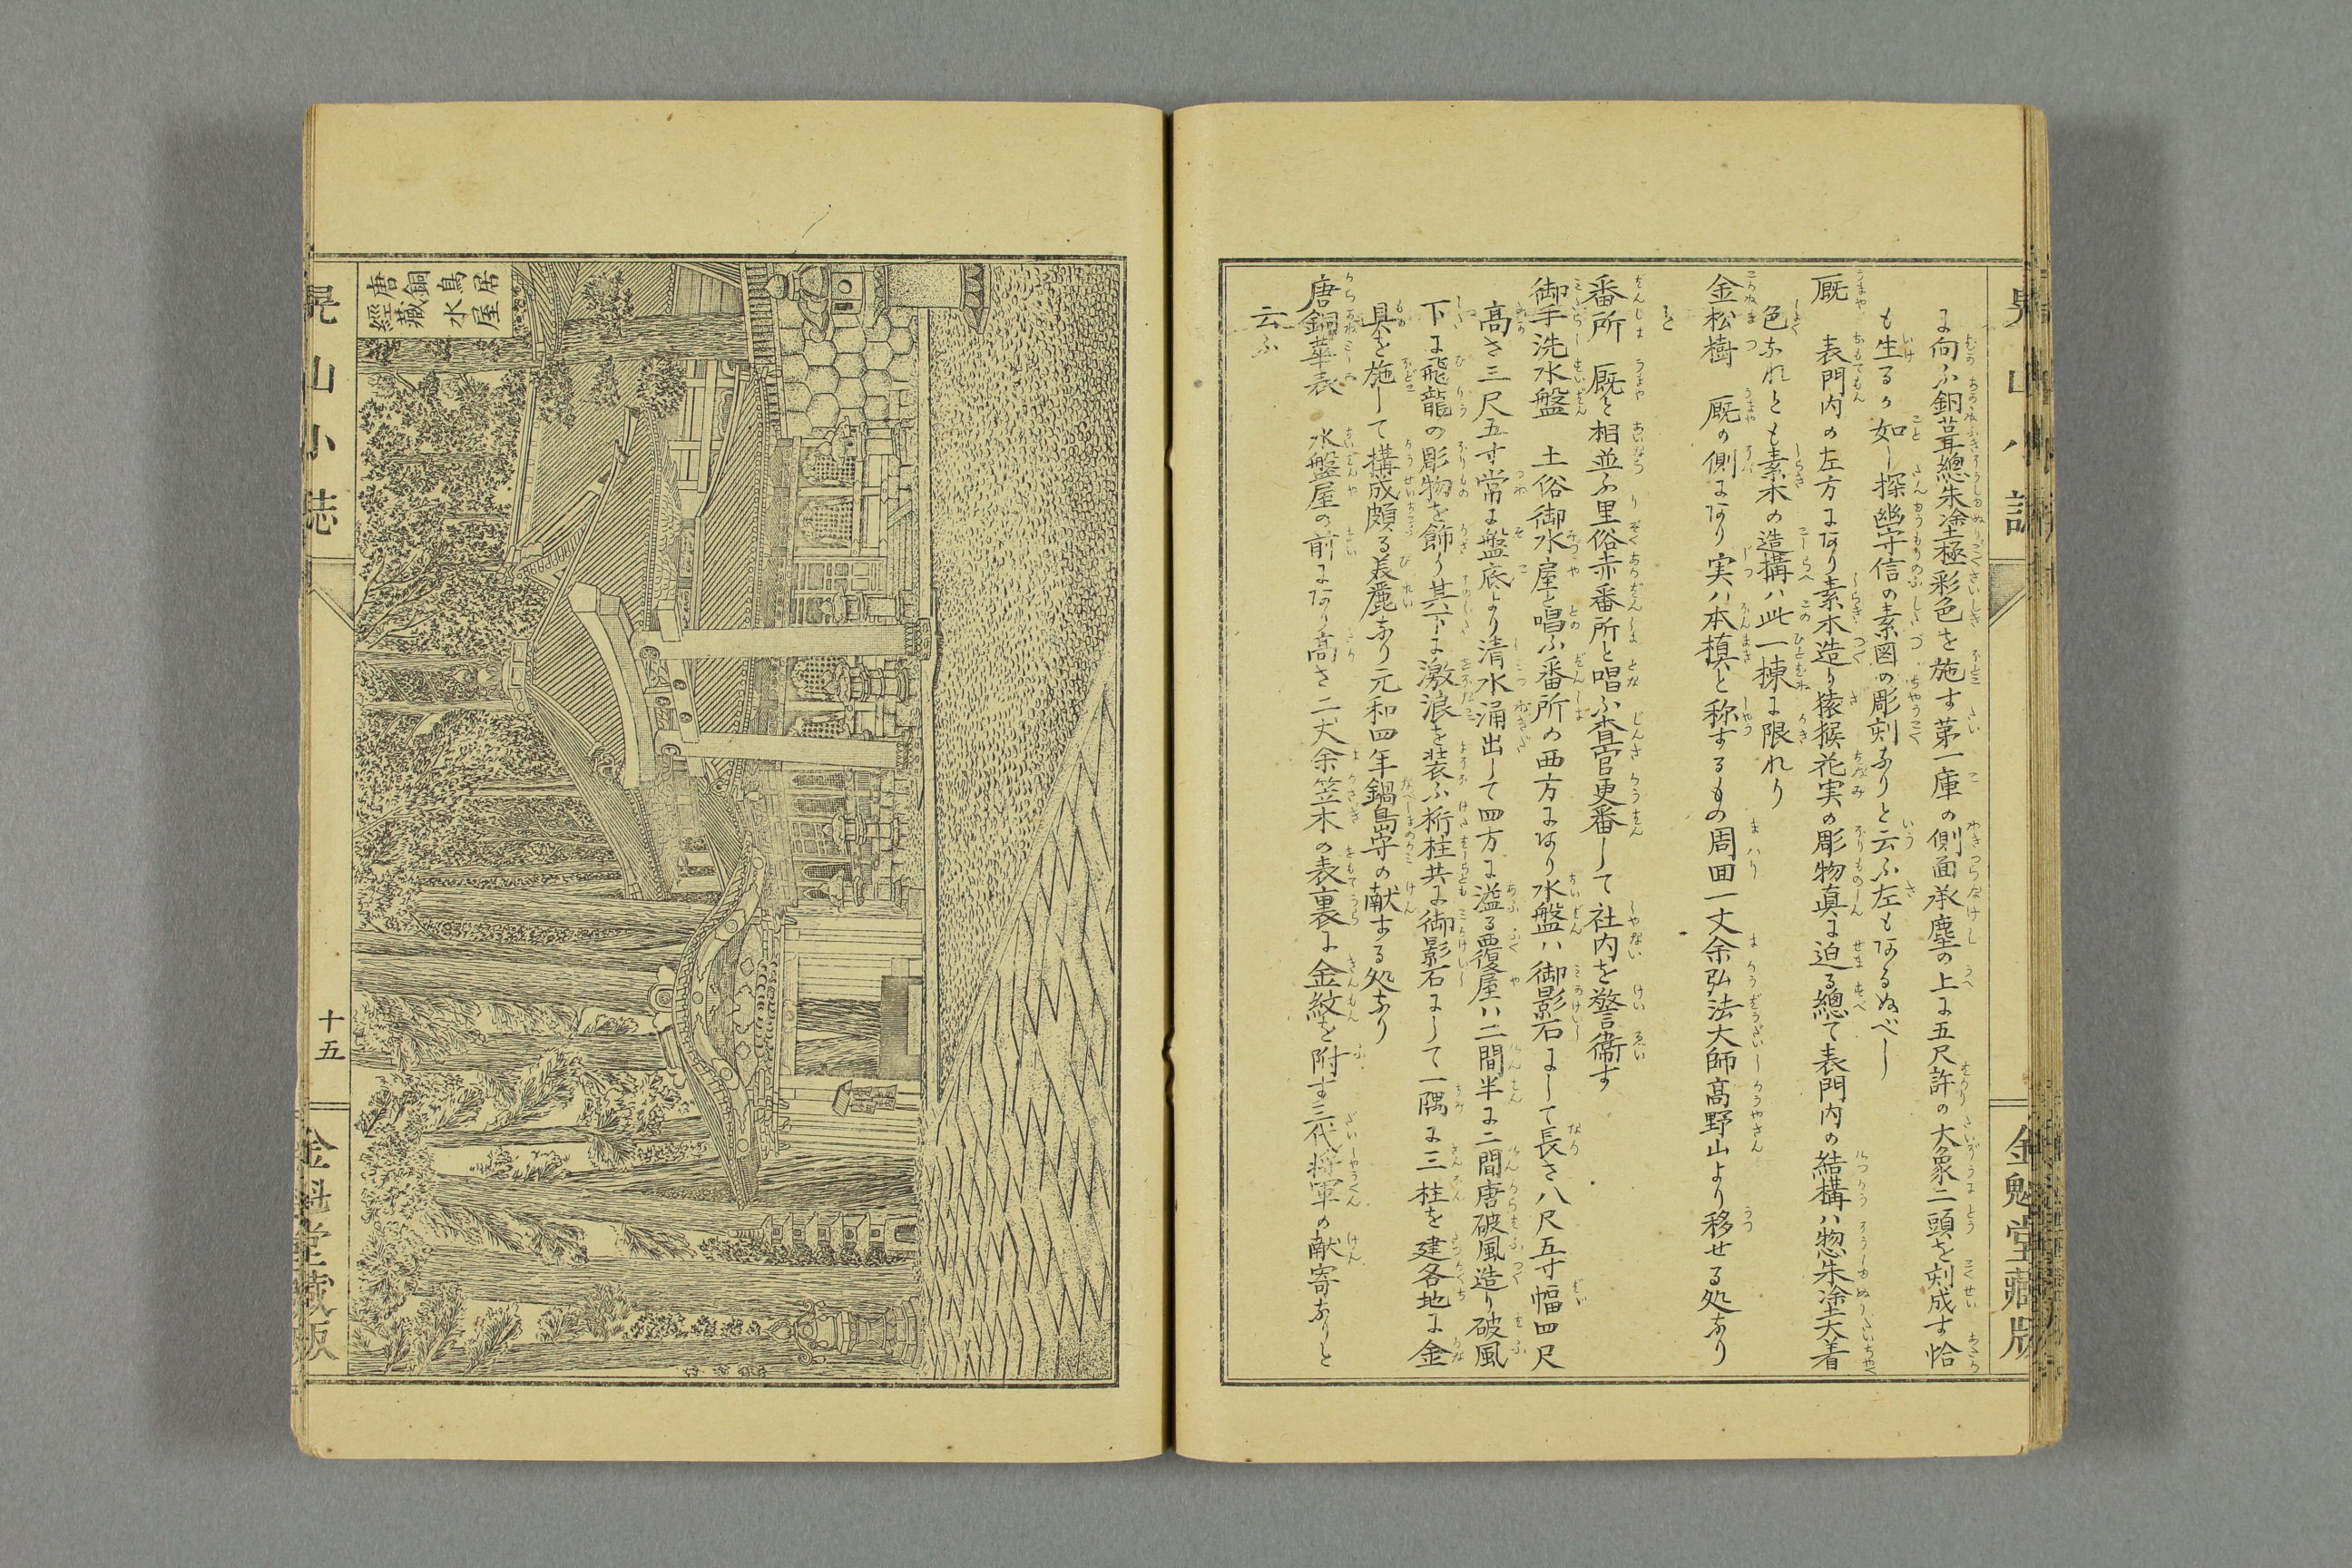 に向ふ銅葺總朱塗極彩色を施す第一庫の側面承塵の上に五尺許の大象二頭を刻成す恰
も生るか如し探幽守信の素図の彫刻なりと云ふ左もあるぬべし
厩　表門内の左方にあり素木造り猿猴花実の彫物真に迫る總て表門内の結構ハ惣朱塗大着
色なれとも素木の造搆ハ此一棟に限れり
金松樹　厩の側にあり実ハ本槙と称するもの周囬一丈余弘法大師高野山より移せる処なり
と
番所　厩と相並ふ里俗赤番所と唱ふ査官更番して社内を警衞す
御手洗水盤　土俗御水屋と唱ふ番所の西方にあり水盤ハ御影石にして長さ八尺五寸幅四尺
高さ三尺五寸常に盤底より清水涌出して四方に溢る覆屋ハ二間半に二間唐破風造り破風
下に飛龍の彫物を飾り其下に激浪を装ふ桁柱共に御影石にして一隅に三柱を建各地に金
具を施して搆成頗る美麗なり元和四年鍋島守の献する処なり
唐銅華表　水盤屋の前にあり高さ二丈余笠木の表裏に金紋を附す三代将軍の献寄なりと
云ふ
金魁堂藏版
居屋
鳥水
銅藏
唐經
晃山小誌
十五
金魁堂藏版